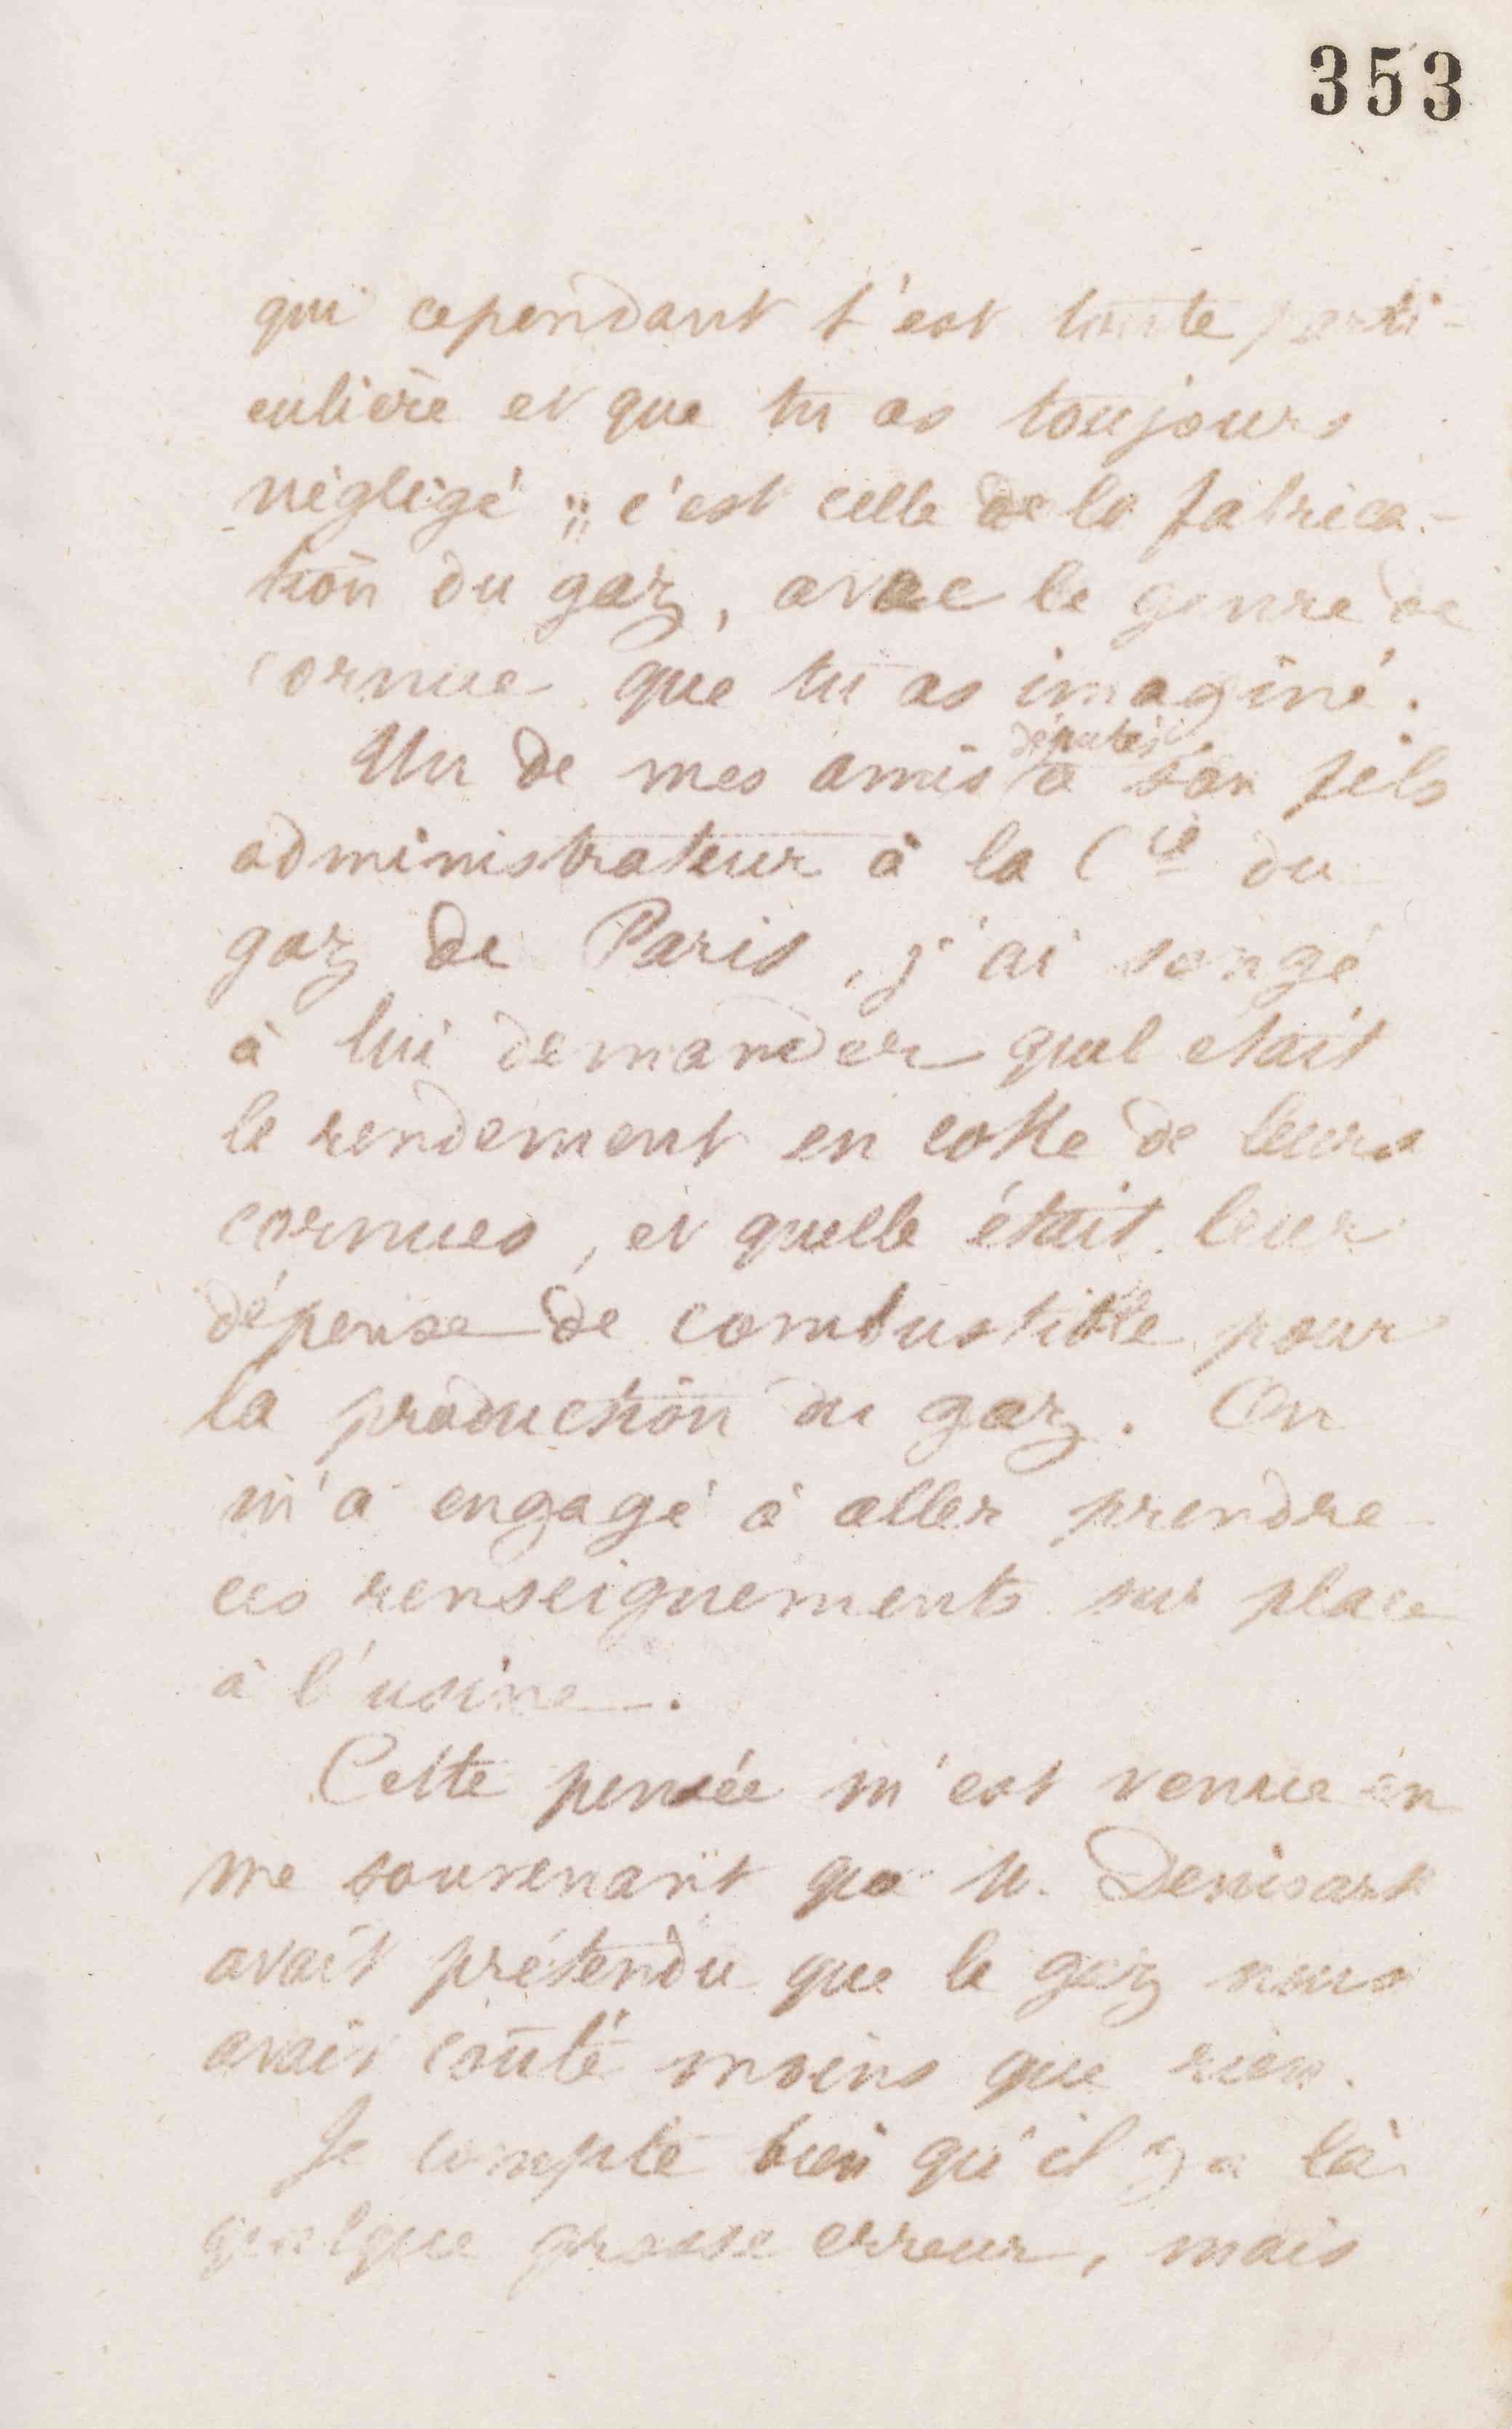 353
qui cependant t'est toute parti-
culière et que tu as toujours
négligé ; c'est celle de la fabrica-
tion du gaz, avec le genre de
cornue que tu as imaginé.
Un de mes amis députés a son fils
administrateur à la Cie du
gaz de Paris, j'ai songé
à lui demander quel était
le rendement en coke de leurs
cornues, et quelle était leur
dépense de combustible pour
la production du gaz. On
m'a engagé à aller prendre
ces renseignements sur place
à l'usine.
Cette pensée m'est venue en
me souvenant que M. Denisart
avait prétendu que le gaz nous
avait coûté moins que rien.
Je compte bien qu'il y a là
quelque grosse erreur, mais